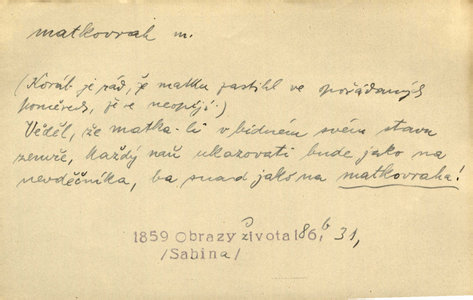 matkovrah m.
(Koráb je rád, že matku zastihl ve spořádaných
poměrech, že se neopíjí.)
Věděl, že matka-li v bídném svém stavu
zemře, každý naň ukazovati bude jako na
nevděčníka, ba snad jako na matkovraha!
1859 Obrazy života 186, b 31,
/Sabina/